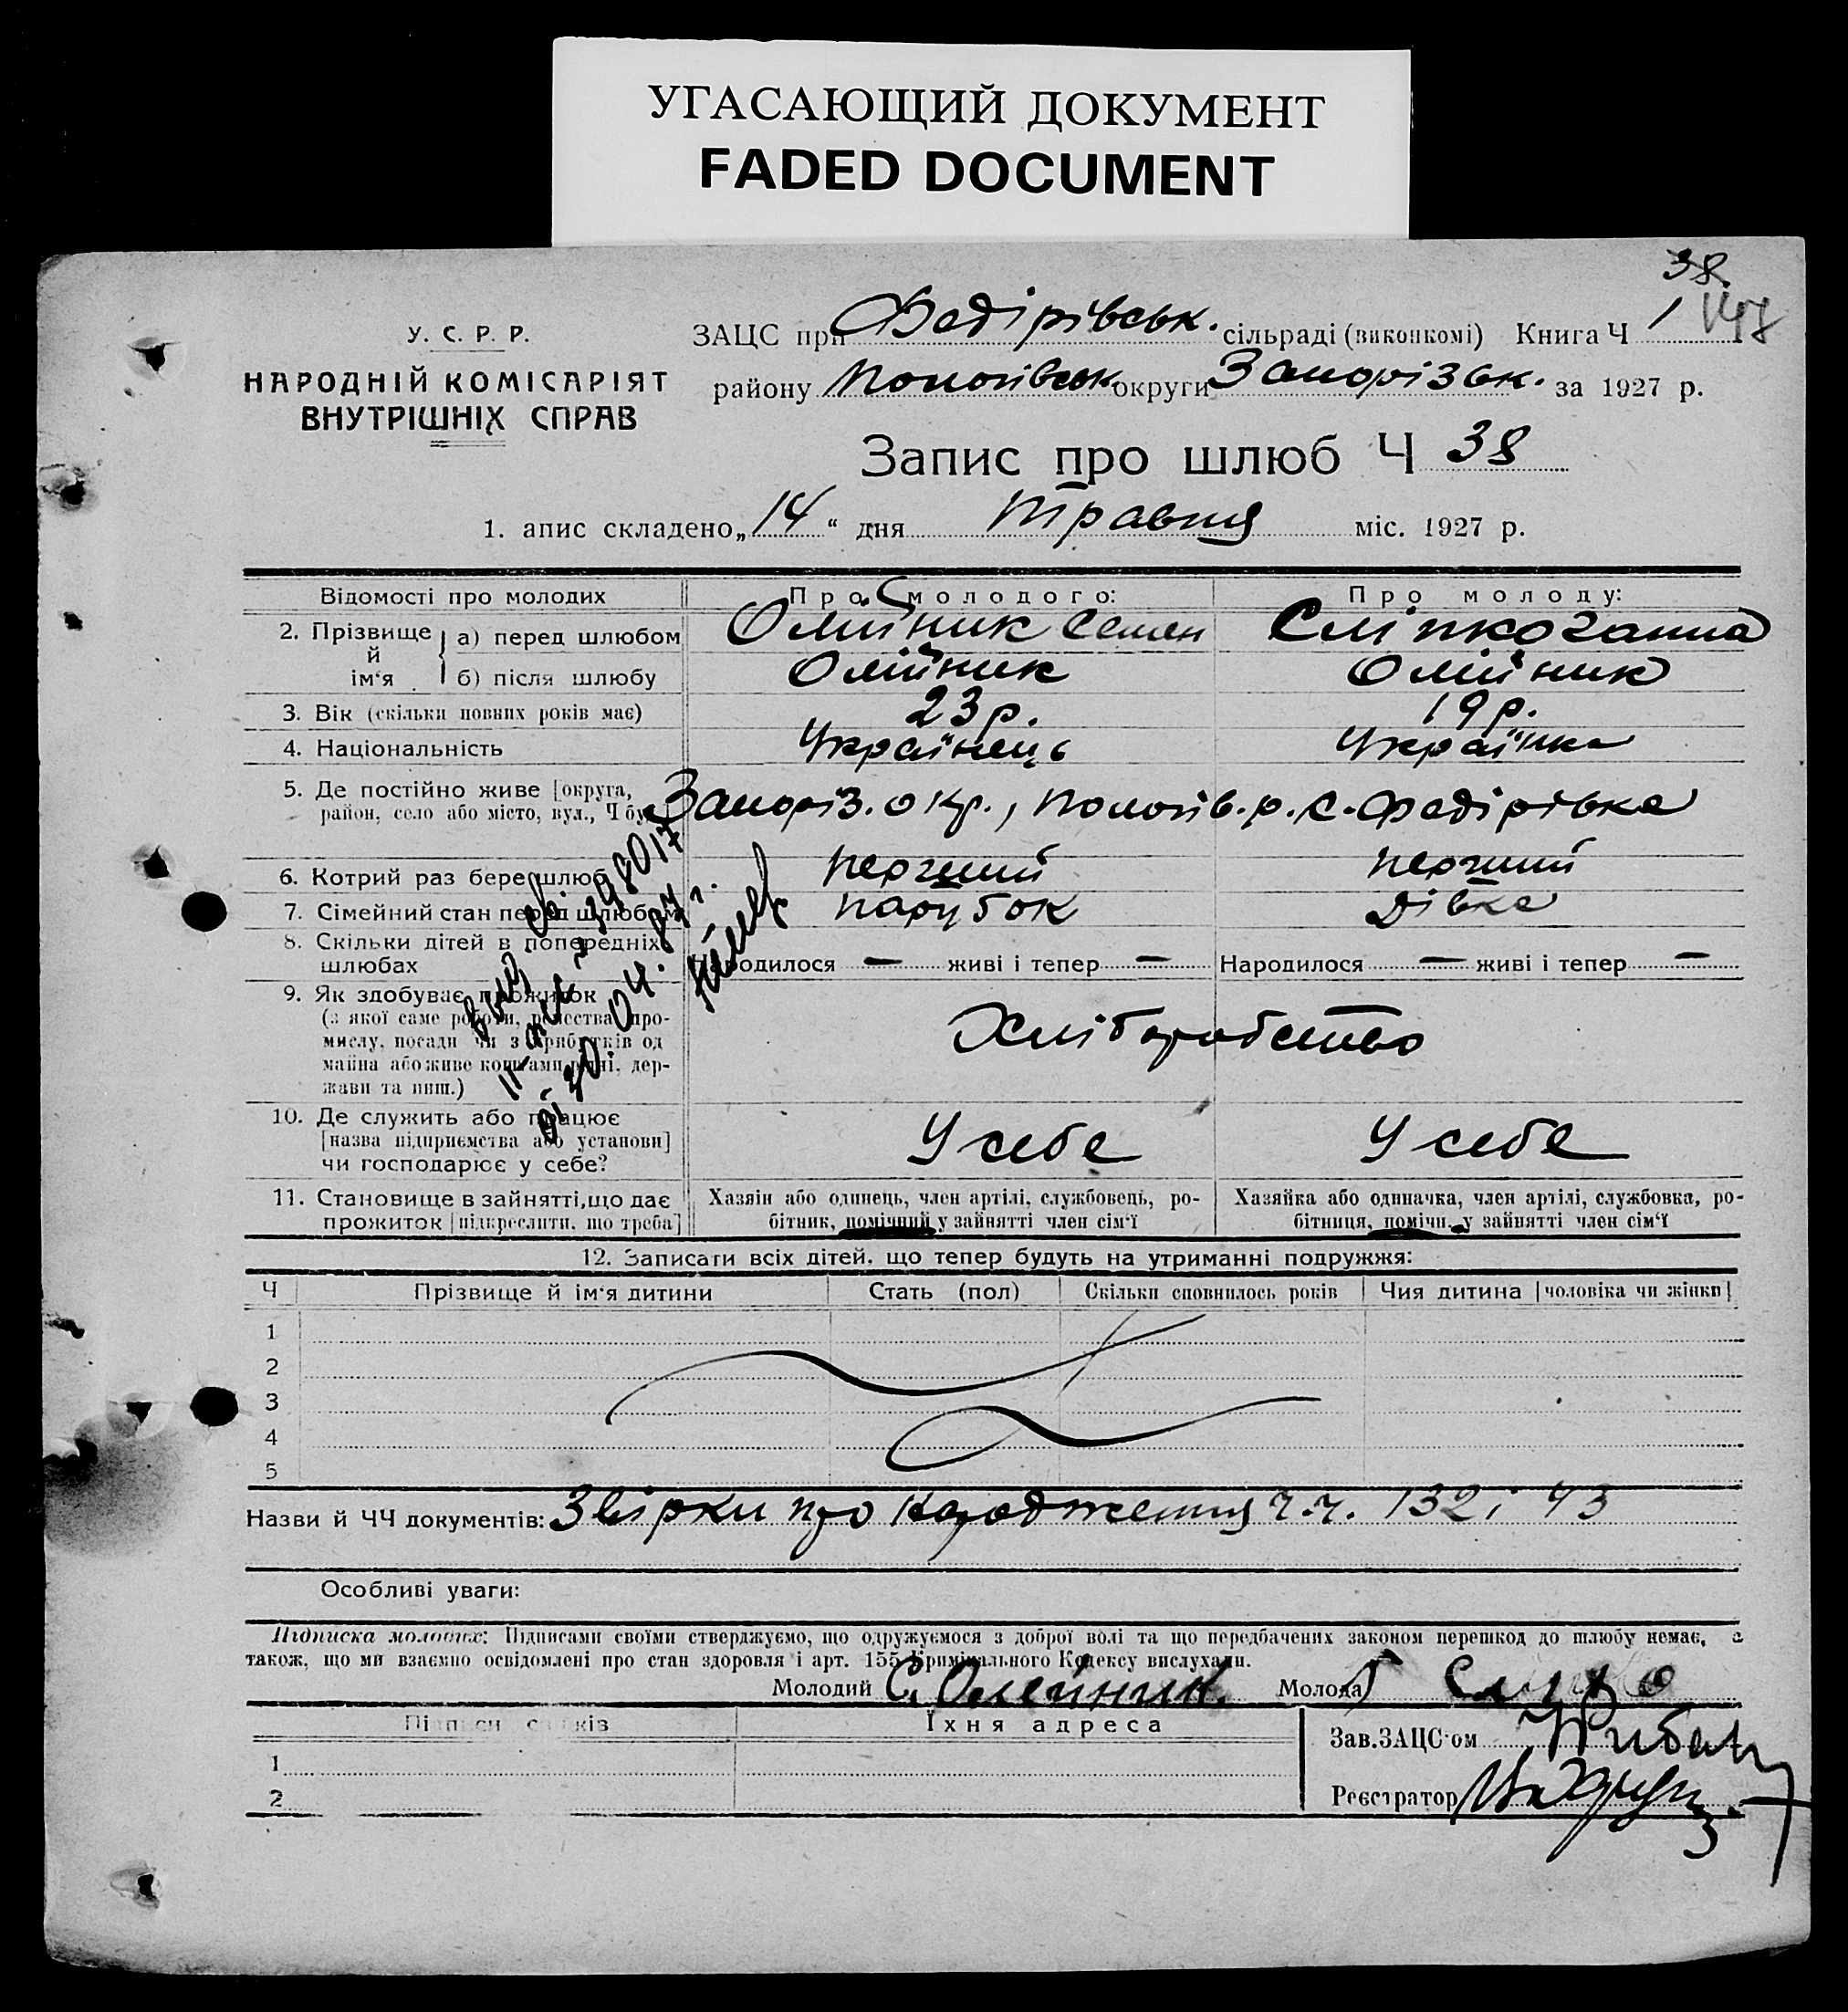 УГАСАЮЩИЙ ДОКУМЕНТ
FADED DOCUMENT
38
У. С. Р. Р.
НАРОДНІЙ КОМІСАРІЯТ
ВНУТРІШНІХ СПРАВ
ЗАЦС при Федірівськ. сільраді (виконкомі) Книга Ч 1
району Пологівськ округи Запорізьк. за 1927 р.
Запис про шлюб Ч 38
1. апис складено „14“ дня Травня міс. 1927 р.
Відомості про молодих Про молодого: Про молоду:
2. Прізвище й ім'я а) перед шлюбом Олійник Семен Сліпко Ганна
б) після шлюбу Олійник Олійник
3. Вік (скільки повних років має) 23 р. 19 р.
4. Національність Українець Українка
5. Де постійно живе [округа,
район, село або місто, вул., Ч бу Запоріз. окр., Пологів. р. с. Федірівка
6. Котрий раз бере шлюб Перший Перший
7. Сімейний стан перед шлюбом Парубок Дівка
8. Скільки дітей в попередніх
шлюбах Народилося — живі і тепер — Народилося — живі і тепер —
9. Як здобуває прожиток
(з якої саме роботи, ремества, про-
мислу, посади чи з прибутків од
майна або живе коштами рідні, дер-
жави та инш.) Хліборобство
10. Де служить або працює
[назва підприємства або установи]
чи господарює у себе? У себе У себе
11. Становище в зайнятті, що дає
прожиток [підкреслити, що треба]
Хазяїн або одинець, член артілі, службовець, ро-
бітник, помічний у зайнятті член сім'ї
Хазяйка або одиначка, член артілі, службовка, ро-
бітниця, помічн. у зайнятті член сім'ї
12. Записати всіх дітей, що тепер будуть на утриманні подружжя:
Ч Прізвище й ім'я дитини Стать (пол) Скільки сповнилось років Чия дитина [чоловіка чи жінки]
1
2
3
4
5
Назви й ЧЧ документів: Звірки про народження ч.ч. 132 і 43
Особливі уваги:
Підписка молодих: Підписами своїми стверджуємо, що одружуємося з доброї волі та що передбачених законом перешкод до шлюбу немає, а
також, що ми взаємно освідомлені про стан здоровля і арт. 155 Кримінального Кодексу вислухали.
Молодий С. Олейник Молода Г Слипко
Підписи свідків Їхня адреса
Зав.ЗАЦС'ом
1
Реєстратор
2